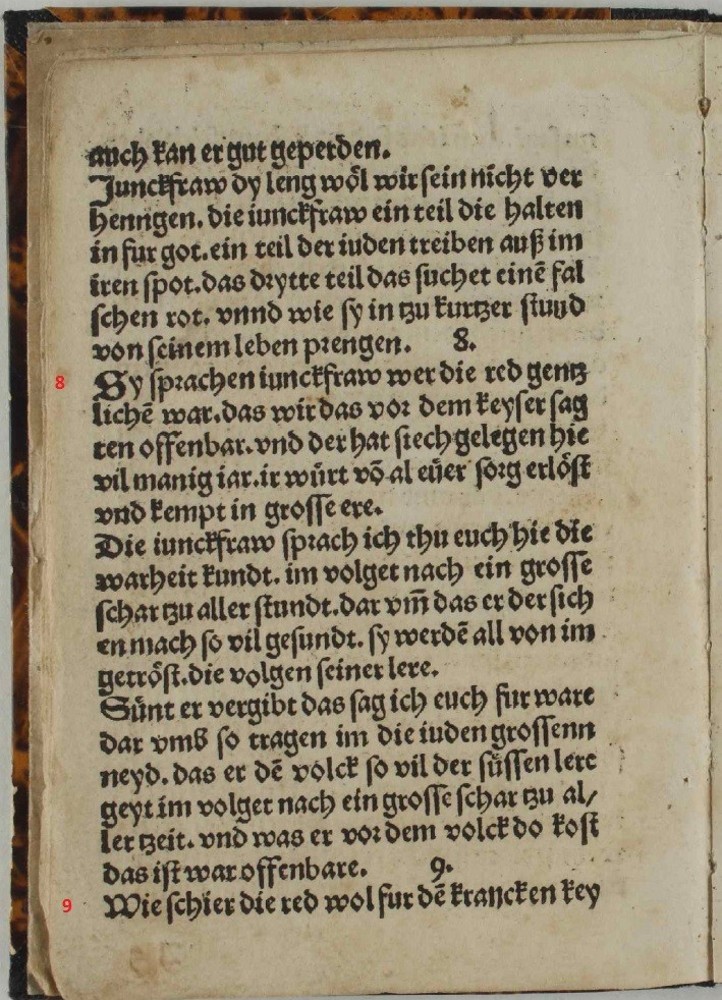 auch kan er gut geperden.
Junckfraw dy leng wöl wir sein nicht ver
henngen. die iunckfraw ein teil die halten
in fur got. ein teil der iuden treiben auß im
iren spot. das drytte teil das suchet einē fal
schen rot. vnnd wie sy in tzu kurtzer stuud
von seinem leben prengen. 8.
8 Sy sprachen iunckfraw wer die red gentz
lichē war. das wir das vor dem keyser sag
ten offenbar. vnd der hat siech gelegen hie
vil manig iar. ir würt vō al eüer sorg erlöst
vnd kempt in grosse ere.
Die iunckfraw sprach ich thu euch hie die
warheit kundt. im volget nach ein grosse
schar tzu aller stundt. dar vm̄ das er der sich
en mach so vil gesundt. sy werdē all von im
getröst. die volgen seiner lere.
Sünt er vergibt das sag ich euch fur ware
dar vmb so tragen im die iuden grossenn
neyd. das er dē volck so vil der süssen lere
geyt im volget nach ein grosse schar tzu al/
ler tzeit. vnd was er vor dem volck do kost
das ist war offenbare. 9.
9 Wie schier die red wol fur dē krancken key